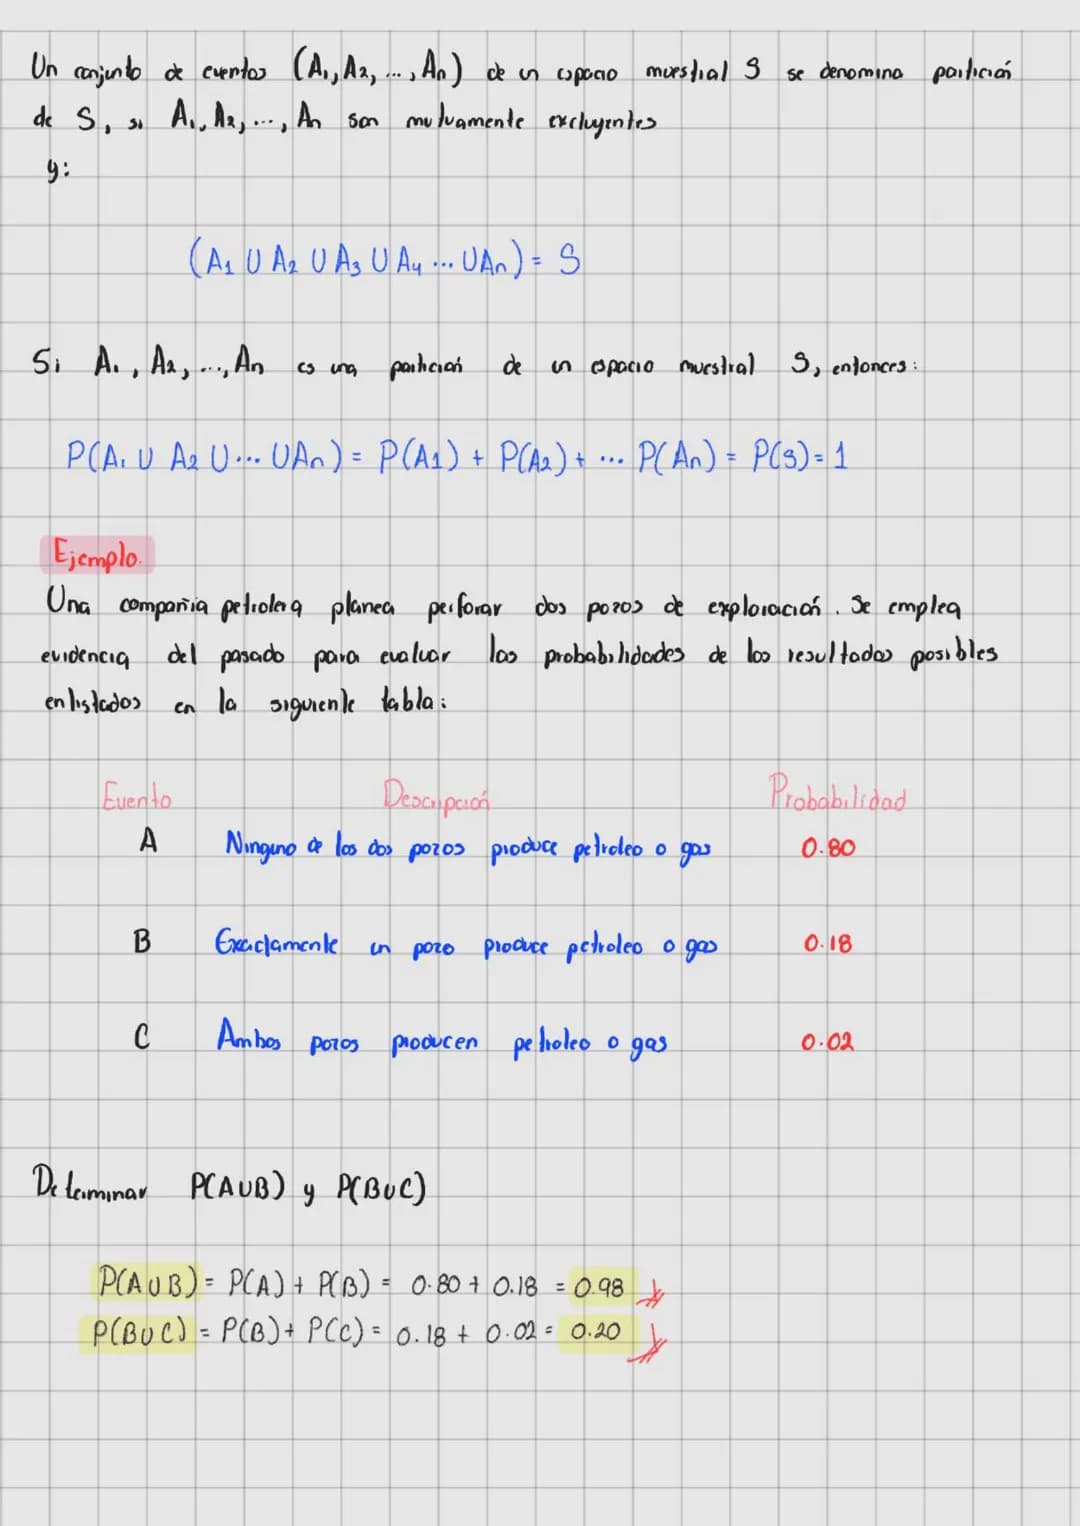 Un conjunto de eventos (A₁, A₂, ..., An) de un espacio muestral S se denomina partición
de S, si A₁, A₂, ..., An son mutuamente excluyentes
y:
(A₁ U A₂ U A₃ U A₄ ... UAn) = S
Si A₁, A₂, ..., An es una partición de un espacio muestral S, entonces:
P(A₁ U A₂ U... UAn) = P(A₁) + P(A₂) + ... P(An) = P(S) = 1
Ejemplo.
Una compañia petrolera planea perforar dos pozos de exploración. Se emplea
evidencia del pasado para evaluar las probabilidades de los resultados posibles
enlistados en la siguiente tabla:
Evento Descripción Probabilidad
A Ninguno de los dos pozos produce petroleo o gas 0.80
B Exactamente un pozo produce petroleo o gas 0.18
C Ambos pozos producen petroleo o gas 0.02
Determinar P(AUB) y P(BUC)
P(AUB) = P(A) + P(B) = 0.80 + 0.18 = 0.98
P(BUC) = P(B) + P(C) = 0.18 + 0.02 = 0.20